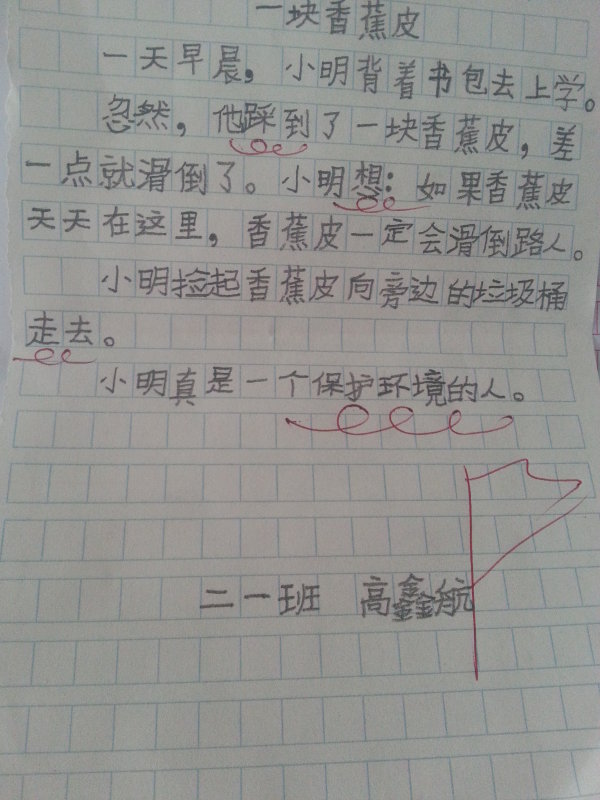 一块香蕉皮
一天早晨，小明背着书包去上学。
忽然，他踩到了一块香蕉皮，差
一点就滑倒了。小明想：如果香蕉皮
天天在这里，香蕉皮一定会滑倒路人。
小明捡起香蕉皮向旁边的垃圾桶
走去。
小明真是一个保护环境的人。
二一班 高鑫航